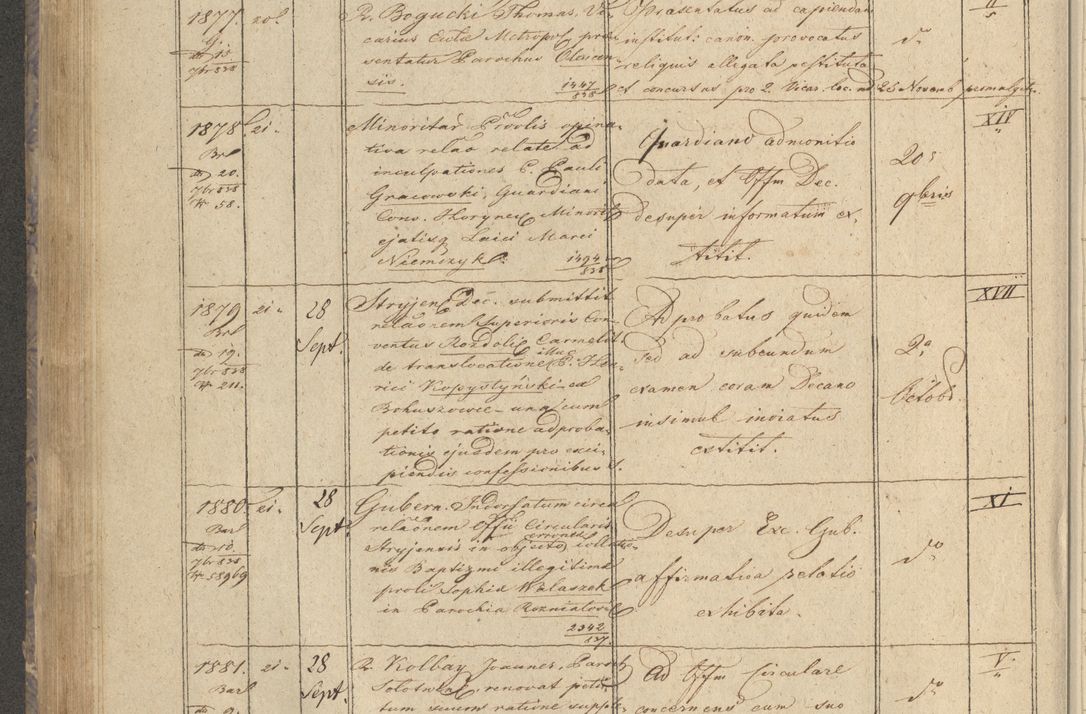 1877. zol.
R. Bogucki Thomas. Vi-
carius Eccl. Metropol. prae
sentatur Parochus Olescen-
sis.
1447/838
Praesentatus ad capiendam
institut: canon. provocatus
reliquis allegata restituta
et concursus pro 2. Vicar. loc. ad 26 Novemb. promulgat.
dto
II/5
1878. 21.
Brl
dto 20.
7br 838
Nr 58.
Minoritar. Provlis opina-
tiva relao relate ad
inculpationes P. Pauli
Gracowski, Guardiani
Conv. Horynec. Minorit.
ejatisq Laici Marci
Niemczyk.
1494/838
Guardiano admonitio
data, et Offm Dec.
desuper informatum ex-
titit.
20a
9bris
XIV
1879 21. 28
Sept.
Brl
dto 19.
7br 838
Nr 211.
Stryjen. Dec. submittit
relaonem Superioris Con-
ventus Rozdol. Carmelit.
de translocatione illuc P. Hen-
rici Kopystyński ex
Bohuszowce una cum
petito ratione adproba-
tionis ejusdem pro exci-
piendis confessionibus S.
Adprobatus quidem
sed ad subeundum
examen coram Decano
insimul inviatus
extitit.
2a
Octobr.
XVII
1880. 21. 28
Sept.
Barl
dto 10.
7br 838
Nr 58969
Gubern. Indorsatum circa
relaonem Offii Circularis
Stryjensis in objecto erronee collatio-
nis Baptismi illegitimae
proli Sophia Walaszek
in Parochia Rozniatow.
2342/137.
Desuper Exc. Gub.
affirmativa relatio
exhibita.
dto
XI
1881. 21. 28
Sept.
Barl
dto 9.
R. Kolbay Joannes. Paroch.
Solotwin. renovat peti-
tum suum ratione supple-
Ad Offm Circulare
concernens cum suo
dto
V.